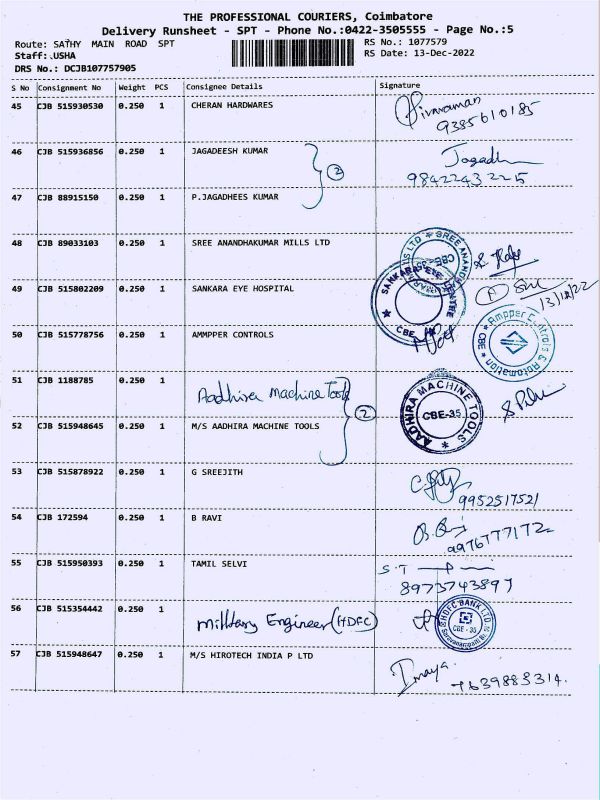 THE PROFESSIONAL COURIERS, Coimbatore
Delivery Runsheet - SPT - Phone No.:0422-3505555 - Page No.:5
Route: SATHY MAIN ROAD SPT
RS No.: 1077579
Staff: USHA
RS Date: 13-Dec-2022
DRS No.: DCJB107757905
S No Consignment No Weight PCS Consignee Details Signature
45 CJB 515930530 0.250 1 CHERAN HARDWARES Sivaraman
9385610185
46 CJB 515936856 0.250 1 JAGADEESH KUMAR
2
9842243225
47 CJB 88915150 0.250 1 P.JAGADHEES KUMAR
48 CJB 89033103 0.250 1 SREE ANANDHAKUMAR MILLS LTD
49 CJB 515802209 0.250 1 SANKARA EYE HOSPITAL
SANKARA EYE CENTRE
CBE
13/12/22
50 CJB 515778756 0.250 1 AMMPPER CONTROLS
Ampper Controls & Automation
CBE
51 CJB 1188785 0.250 1 Aadhira Machine Tools
2
AADHIRA MACHINE TOOLS
CBE-35
52 CJB 515948645 0.250 1 M/S AADHIRA MACHINE TOOLS
53 CJB 515878922 0.250 1 G SREEJITH
9952517521
54 CJB 172594 0.250 1 B RAVI
9976777172
55 CJB 515950393 0.250 1 TAMIL SELVI S.T
8973743897
56 CJB 515354442 0.250 1 Military Engineer (HDFC)
HDFC BANK LTD
CBE - 35
57 CJB 515948647 0.250 1 M/S HIROTECH INDIA P LTD Imaya
7639883314.